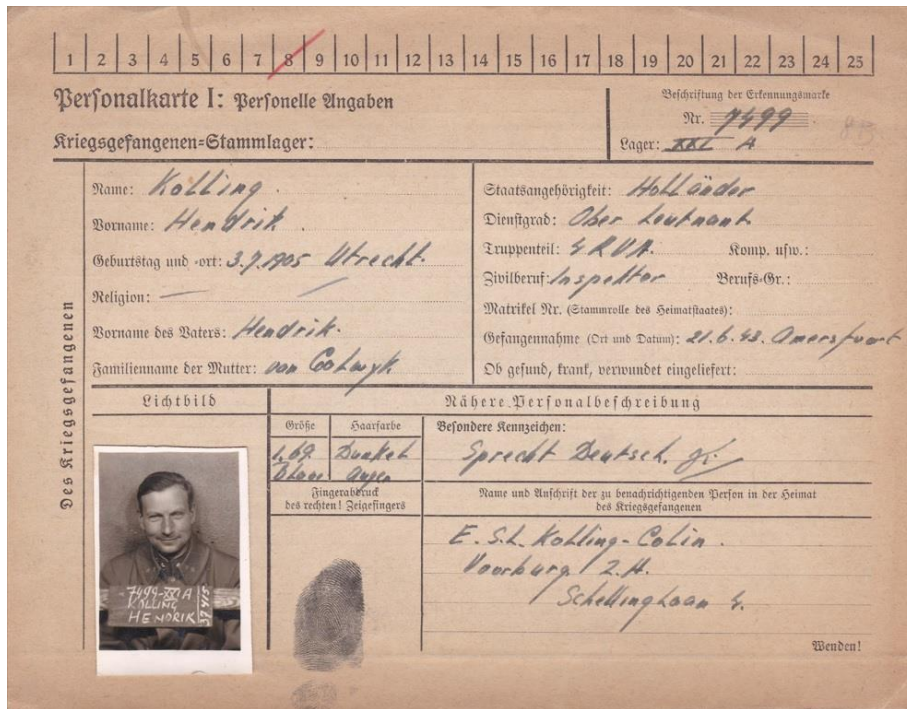 1 2 3 4 5 6 7 8 9 10 11 12 13 14 15 16 17 18 19 20 21 22 23 24 25
Personalkarte I: Personelle Angaben
Kriegsgefangenen=Stammlager:
Beschriftung der Erkennungsmarke
Nr. 7499
Lager: XXI A
Des Kriegsgefangenen
Name: Kolling
Vorname: Hendrik
Geburtstag und =ort: 3.7.1905 Utrecht
Religion:
Vorname des Vaters: Hendrik.
Familienname der Mutter: van
Staatsangehörigkeit: Holländer
Dienstgrad: Ober Leutnant
Truppenteil: Komp. usw.:
Zivilberuf: Inspektor Berufs=Gr.:
Matrikel Nr. (Stammrolle des Heimatstaates):
Gefangennahme (Ort und Datum): 21.6.43. Amersfoort
Ob gesund, krank, verwundet eingeliefert:
Lichtbild
Nähere Personalbeschreibung
Größe Haarfarbe
1.69. Dunkel
Blaue Augen
Besondere Kennzeichen:
Sprecht Deutsch.
Fingerabdruck
des rechten! Zeigefingers
Name und Anschrift der zu benachrichtigenden Person in der Heimat
des Kriegsgefangenen
E. S.L. Kolling-Colin.
Voorburg Z.H.
Schellinglaan 4.
7499-XXI A
KOLLING
HENDRIK
Wenden!